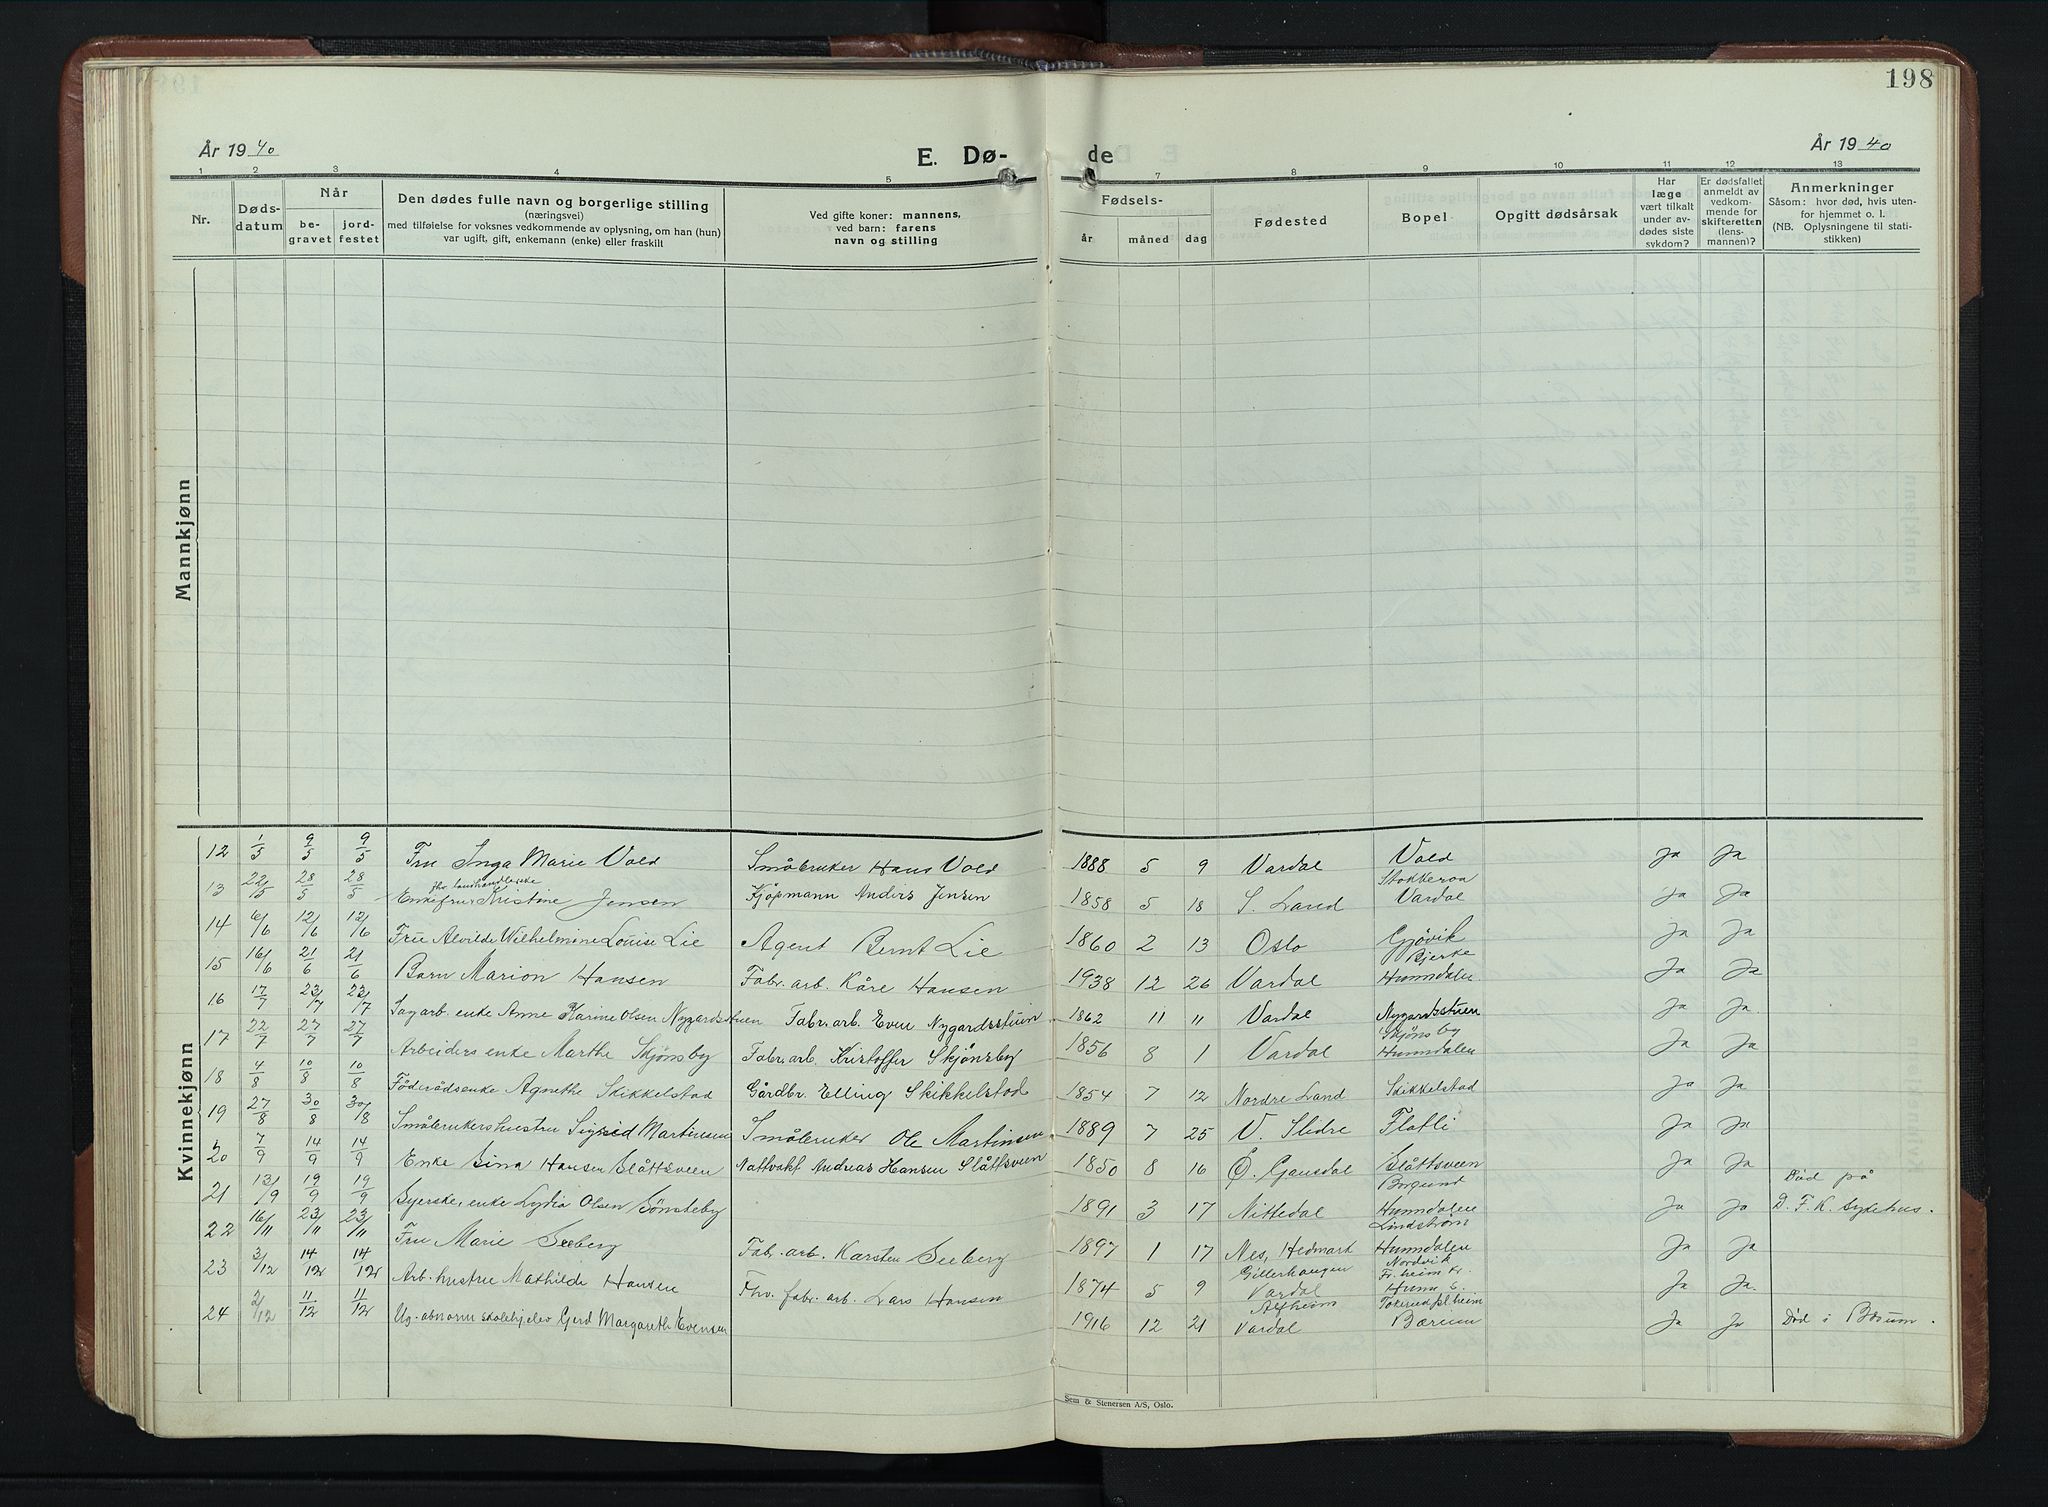 198
År 1940
E. Dø-
de
År 1940
1 2 3 4 5 7 8 9 10 11 12 13
Nr.
Døds-
datum
Når
be-
gravet
jord-
festet
Den dødes fulle navn og borgerlige stilling
(næringsvei)
med tilføielse for voksnes vedkommende av oplysning, om han (hun)
var ugift, gift, enkemann (enke) eller fraskilt
Ved gifte koner: mannens,
ved barn: farens
navn og stilling
Fødsels-
år måned dag
Fødested
Bopel
Opgitt dødsårsak
Har
læge
vært tilkalt
under av-
dødes siste
sykdom?
Er dødsfallet
anmeldt av
vedkom-
mende for
skifteretten
(lens-
mannen)?
Anmerkninger
Såsom: hvor død, hvis uten-
for hjemmet o. l.
(NB. Oplysningene til stati-
stikken)
Mannkjønn
Kvinnekjønn
12 1/5 9/5 9/5 Fru Inga Marie Vold Småbruker Hans Vold 1888 5 9 Vardal Vold Ja Ja
13 22/5 28/5 28/5 Enkefru Kristine Jensen Kjøpmann Anders Jensen 1858 5 18 S. Land Stokkeroa Vardal Ja Ja
14 6/6 12/6 12/6 Fru Alvilde Wilhelmine Louise Lie Agent Bernt Lie 1860 2 13 Oslo Gjøvik Ja Ja
15 16/6 21/6 21/6 Barn Marion Hansen Fabr. arb. Kåre Hansen 1938 12 26 Vardal Bjerke Hunndalen Ja Ja
16 17/7 23/7 23/7 Sagarb. enke Anne Karine Olsen Nygardsstuen Fabr. arb. Even Nygardsstuen 1862 11 11 Vardal Nygardsstuen Ja Ja
17 22/7 27/7 27/7 Arbeiders enke Marthe Skjønsby Fabr. arb. Kristoffer Skjønsby 1856 8 1 Vardal Skjønsby Hunndalen Ja Ja
18 4/8 10/8 10/8 Föderådsenke Agnethe Skikkelstad Gårdbr. Elling Skikkelstad 1854 7 12 Nordre Land Skikkelstad Ja Ja
19 27/8 30/8 30/8 Småbrukershustru Sigrid Martinsen Småbruker Ole Martinsen 1889 7 25 V. Slidre Flatli Ja Ja
20 7/9 14/9 14/9 Enke Sina Hansen Slåttsveen Nattvakt Andreas Hansen Slåttsveen 1850 8 16 Ö. Gausdal Slåttsveen Ja Ja
21 13/9 19/9 19/9 Syerske, enke Lydia Olsen Sønsteby 1891 3 17 Nittedal Borgund Hunndalen Ja Ja Död på D. F. K. sykehus.
22 16/11 23/11 23/11 Fru Marie Seeberg Fabr. arb. Karsten Seeberg 1897 1 17 Nes, Hedmark Lindstrøm Hunndalen Ja Ja
23 3/12 14/12 14/12 Arb. hustru Mathilde Hansen Fhv. fabr. arb. Lars Hansen 1874 5 9 Vardal Nordvik Ja Ja.
24 2/12 11/12 11/12 Ug. abnorm skolehjelev Gerd Margareth Evensen 1916 12 21 Alfheim Vardal Bærum Ja Ja Död i Bærum.
Sem & Stenersen A/S, Oslo.